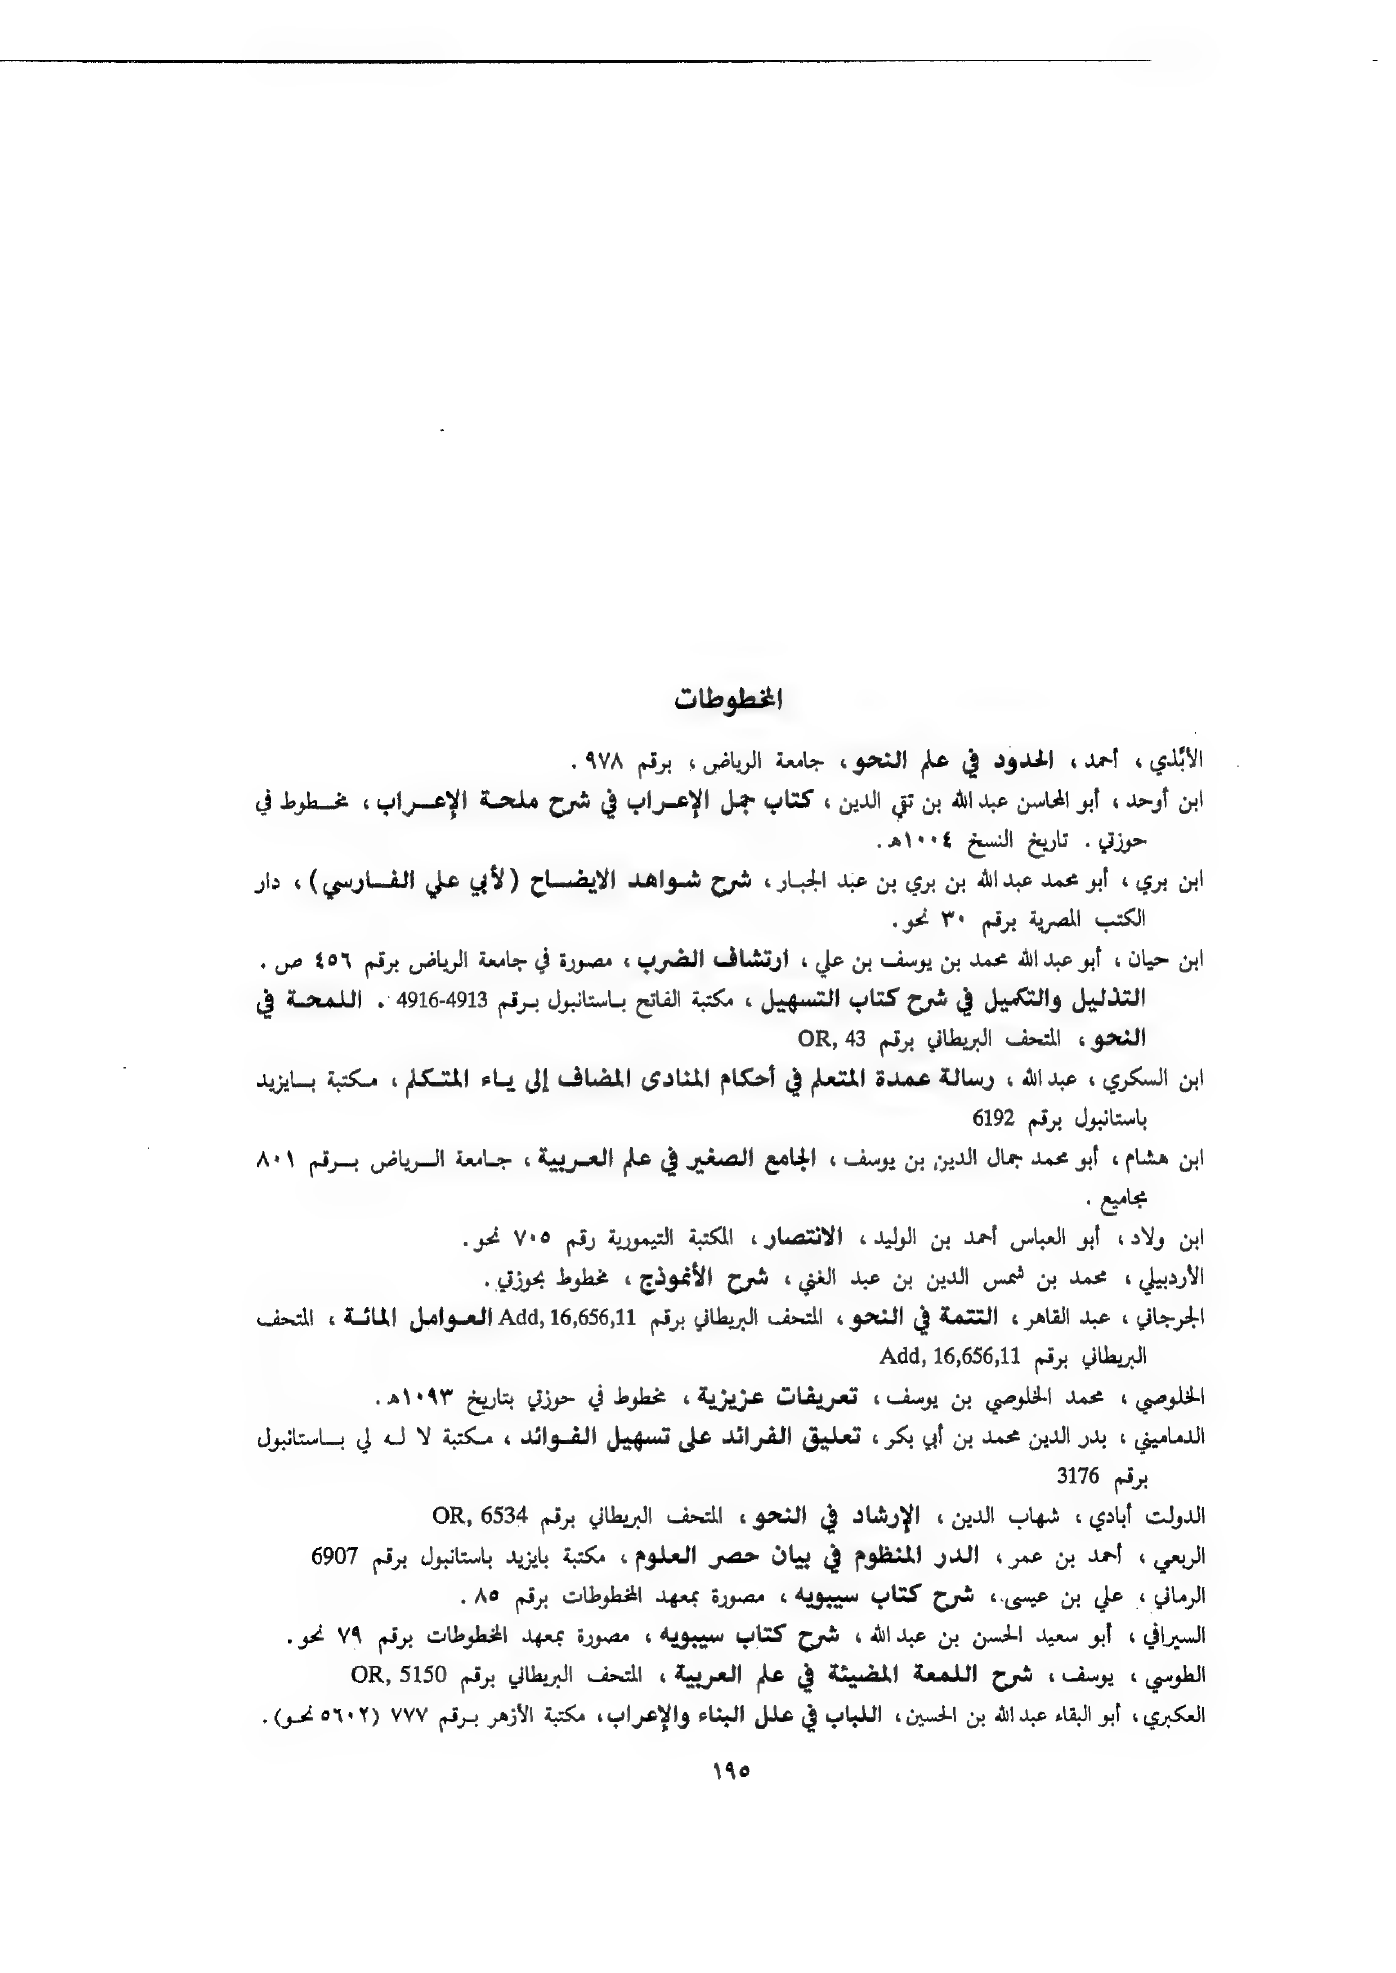 المخطوطات
الأبَّذي ، أحمد ، الحدود في علم النحو ، جامعة الرياض ، برقم ٩٧٨ .
ابن أوحد ، أبو المحاسن عبد الله بن تقي الدين ، كتاب جمل الإعراب في شرح ملحة الإعراب ، مخطوط في
حوزتي . تاريخ النسخ ١٠٠٤هـ .
ابن بري ، أبو محمد عبد الله بن بري بن عبد الجبار ، شرح شواهد الايضاح (لأبي علي الفارسي) ، دار
الكتب المصرية برقم ٣٠ نحو .
ابن حيان ، أبو عبد الله محمد بن يوسف بن علي ، ارتشاف الضرب ، مصورة في جامعة الرياض برقم ٤٥٦ ص .
التذليل والتكميل في شرح كتاب التسهيل ، مكتبة الفاتح باستانبول برقم 4913-4916 . اللمحة في
النحو ، المتحف البريطاني برقم OR, 43
ابن السكري ، عبد الله ، رسالة عمدة المتعلم في أحكام المنادى المضاف إلى ياء المتكلم ، مكتبة بايزيد
باستانبول برقم 6192
ابن هشام ، أبو محمد جمال الدين بن يوسف ، الجامع الصغير في علم العربية ، جامعة الرياض برقم ٨٠١
مجاميع .
ابن ولاد ، أبو العباس أحمد بن الوليد ، الانتصار ، المكتبة التيمورية رقم ٧٠٥ نحو .
الأردبيلي ، محمد بن شمس الدين بن عبد الغني ، شرح الأنموذج ، مخطوط بحوزتي .
الجرجاني ، عبد القاهر ، التتمة في النحو ، المتحف البريطاني برقم Add, 16,656,11 العوامل المائة ، المتحف
البريطاني برقم Add, 16,656,11
الخلوصي ، محمد الخلوصي بن يوسف ، تعريفات عزيزية ، مخطوط في حوزتي بتاريخ ١٠٩٣هـ .
الدماميني ، بدر الدين محمد بن أبي بكر ، تعليق الفرائد على تسهيل الفوائد ، مكتبة لا له لي باستانبول
برقم 3176
الدولت أبادي ، شهاب الدين ، الإرشاد في النحو ، المتحف البريطاني برقم OR, 6534
الربعي ، أحمد بن عمر ، الدر المنظوم في بيان حصر العلوم ، مكتبة بايزيد باستانبول برقم 6907
الرماني ، علي بن عيسى ، شرح كتاب سيبويه ، مصورة بمعهد المخطوطات برقم ٨٥ .
السيرافي ، أبو سعيد الحسن بن عبد الله ، شرح كتاب سيبويه ، مصورة بمعهد المخطوطات برقم ٧٩ نحو .
الطوسي ، يوسف ، شرح اللمعة المضيئة في علم العربية ، المتحف البريطاني برقم OR, 5150
العكبري ، أبو البقاء عبد الله بن الحسين ، اللباب في علل البناء والإعراب ، مكتبة الأزهر برقم ٧٧٧ (٥٦٠٢ نحو) .
١٩٥